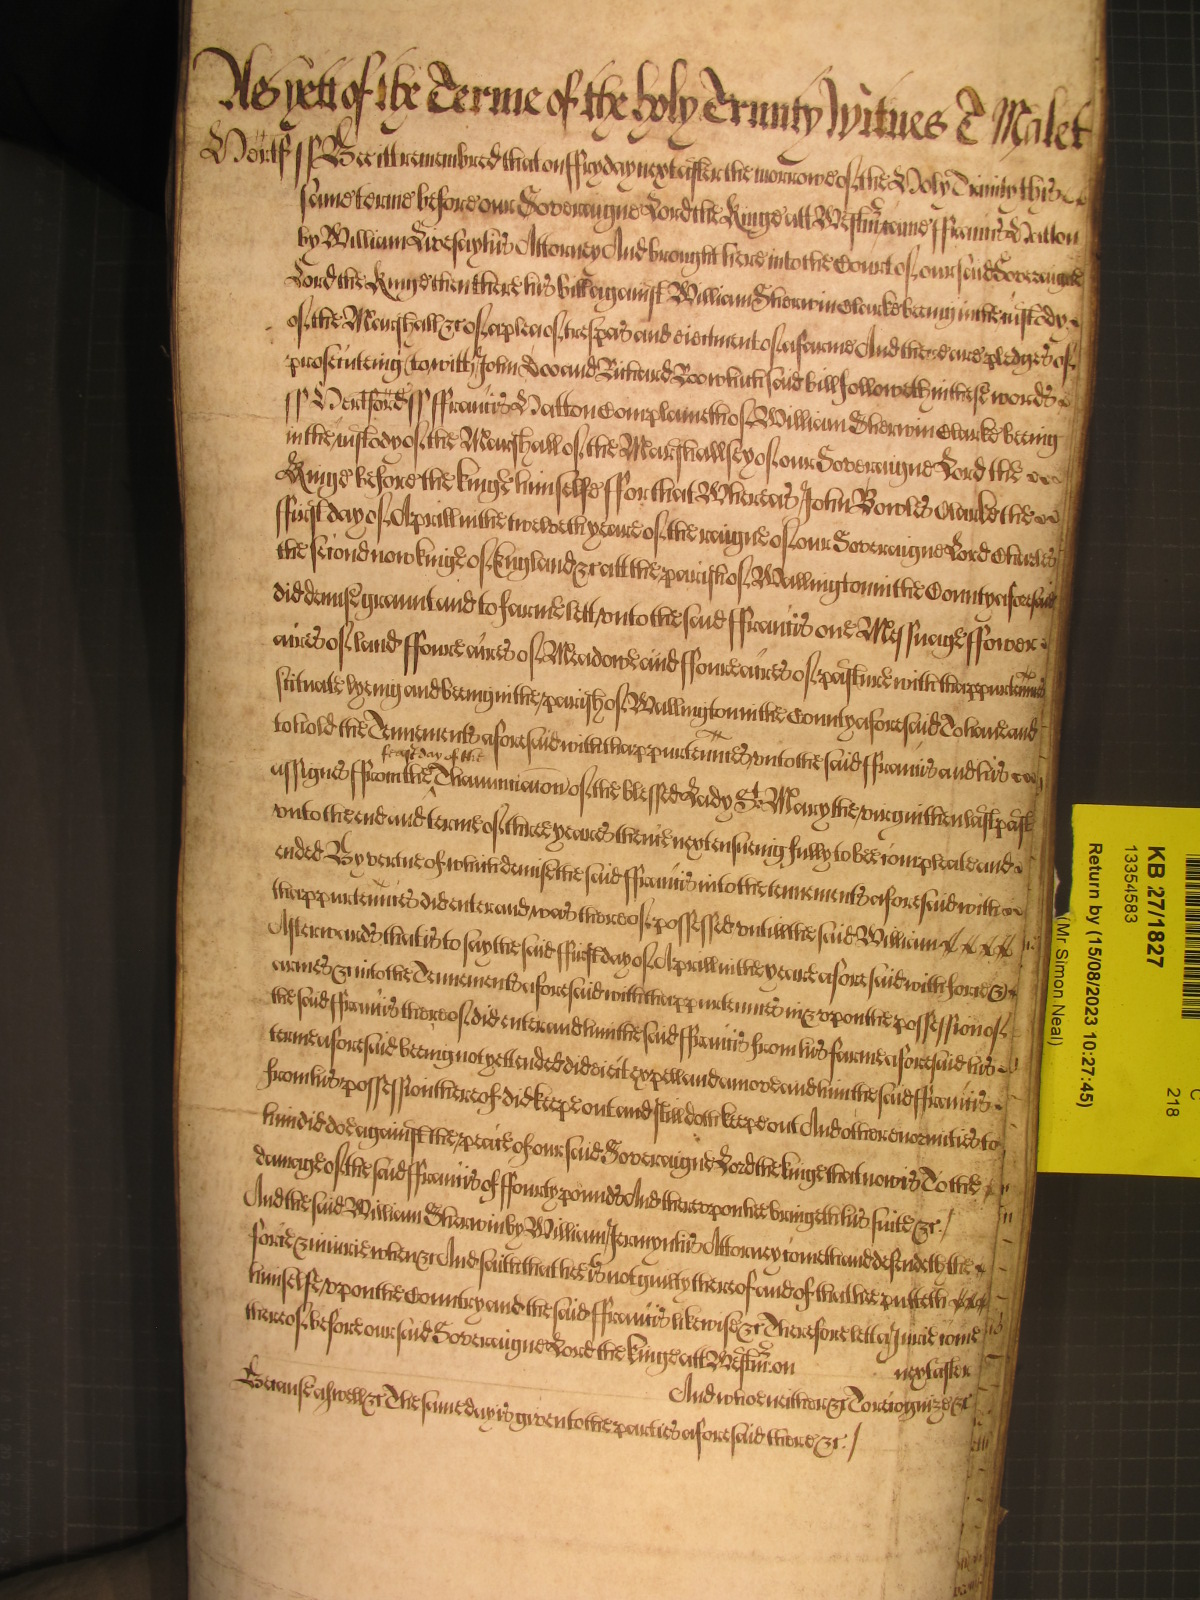 As yett of the Terme of the holy Trinity Witnes T Malet
Hertf ss Bee itt remembred that on ffryday next after the morrowe of the Holy Trinity this
same terme before our Soveraigne Lord the Kinge att Westm̃ came ffrancis Hatton
by William Livesay his Attorney And brought here into the Court of our said Soveraigne
Lord the Kinge then there his bill against William Sherwin Clarke beeing in the custody
of the Marshall &c of a plea of trespas and eiectment of a farme And there are pledges of
prosecuteing to witt John Doo and Richard Roo which said bill followeth in these words
ss Hertford ss ffrancis Hatton Complaineth of William Sherwin Clarke beeing
in the custody of the Marshall of the Marshallsey of our Soveraigne Lord the
Kinge before the kinge himselfe ffor that Whereas John Bowles Clarke the
ffirst day of Aprill in the twelveth yeare of the raigne of our Soveraigne Lord Charles
the second now kinge of England &c att the parish of Wallington in the County aforesaid
did demise graunt and to farme lett vnto the said ffrancis one Messuage ffower
acres of land ffoure acres of Meadowe and ffoure acres of pasture with thappurtennces
scituate lyeing and beeing in the parish of Wallington in the County aforesaid To have and
to hold the Tennements aforesaid with thappurtennces vnto the said ffrancis and his
feast day of the
assignes ffrom the Thannunciacon of the blessed Lady St Mary the virgin then last past
vnto the end and terme of three yeares thence next ensueing fully to bee compleate and
ended By vertue of which demise the said ffrancis into the tennements aforesaid with
thappurtennces did enter and was thereof possessed vntill the said William
Afterwards that is to say the said ffirst day of Aprill in the yeare aforesaid with force &
armes &c into the Tennements aforesaid with thappurtennces in & vpon the possession of
the said ffrancis thereof did enter and him the said ffrancis from his farme aforesaid his
terme aforesaid beeing not yett ended did eiect expell and amove and him the said ffrancis
from his possession thereof did keepe out and still doth keepe out And other enormities to
him did doe against the peace of our said Soveraigne Lord the kinge that now is To the
damage of the said ffrancis of ffourty pounds And therevpon hee bringeth his suite &c /
And the said William Sherwin by William Jermyn his Attorney cometh and defendeth the
force & iniurie when &c And saith that hee is not guilty thereof and of that hee putteth
himselfe vpon the Country and the said ffrancis likewise &c Therefore lett a Jurie come
thereof before our said Soveraigne Lord the kinge att Westm̃ on next after
And whoe neither &c To recognize &c
Because aswell &c The same day is given to the parties aforesaid there &c. /
KB 27/1827
13354583
Return by (15/08/2023 10:27:45)
(Mr Simon Neal)
218
C